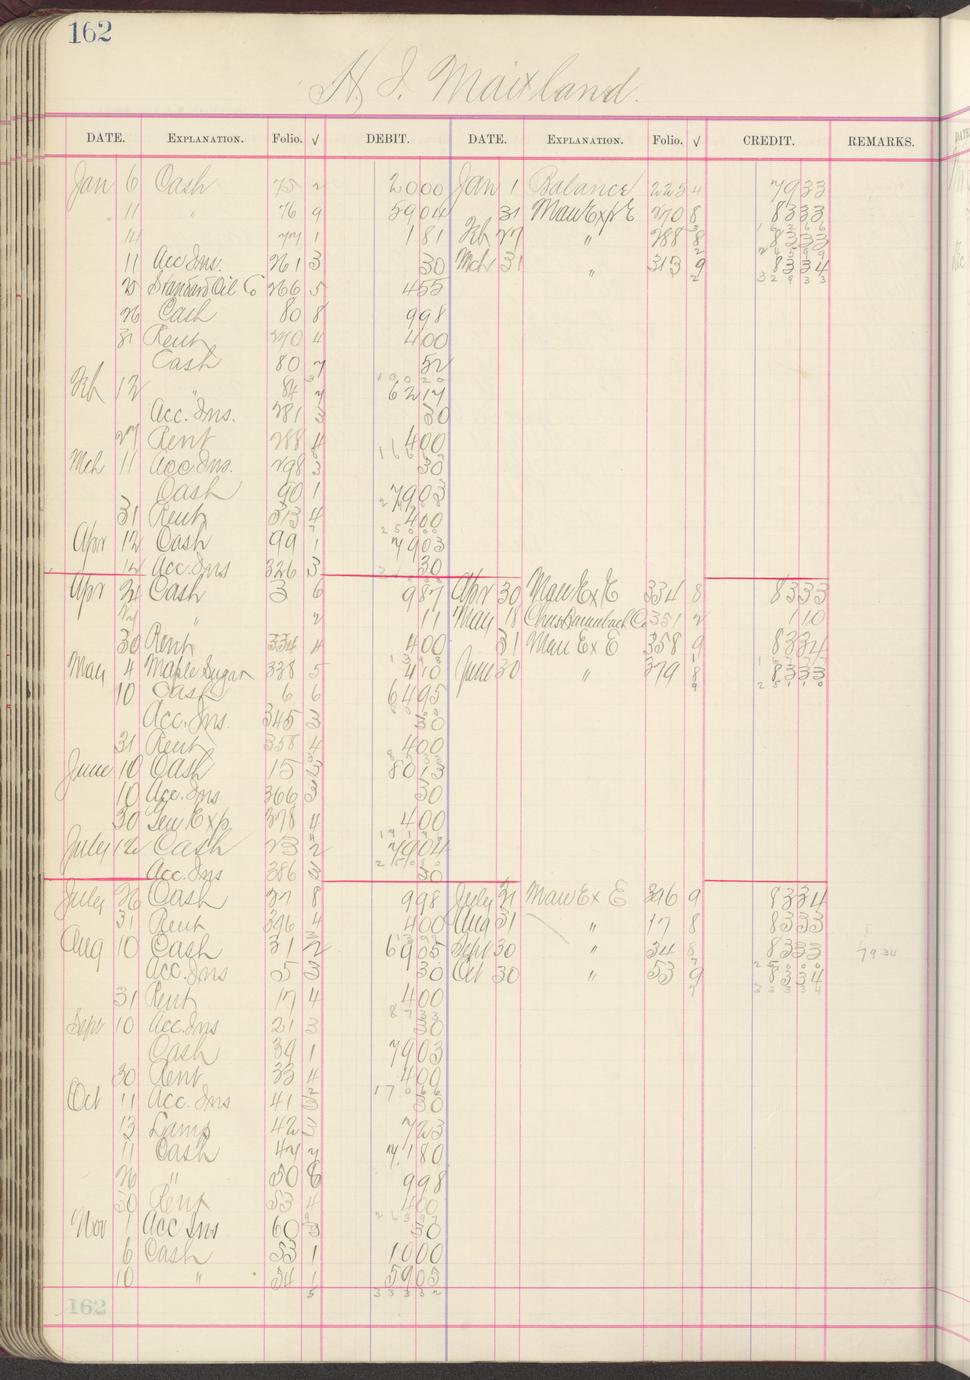 162
H. J. Maitland.
DATE. EXPLANATION. Folio. √ DEBIT. DATE. EXPLANATION. Folio. √ CREDIT. REMARKS.
Jan 6 Cash 75 2 2000 Jan 1 Balance 225 4 7933
11 " 76 9 5904 31 Man Exp E 270 8 8333
14 77 1 181 Feb 27 " 288 8 8333
11 Acc Ins. 261 3 30 Mch 31 " 313 9 8334
25 Standard Oil Co 266 5 455 32933
26 Cash 80 8 998
31 Rent 270 4 400
Cash 80 7 52
Feb 12 " 84 7 6217
Acc. Ins. 281 3 30
27 Rent 288 4 400
Mch 11 Acc Ins. 298 3 30
Cash 90 1 7903
31 Rent 313 4 400
Apr 12 Cash 99 1 7903
12 Acc. Ins 326 3 30
Apr 24 Cash 3 6 987 Apr 30 Man Ex E 334 8 8333
27 " 2 11 May 18 Chas Baumbach Co 351 2 110
30 Rent 334 4 400 31 Man Ex E 358 9 8334
May 4 Maple Sugar 338 5 410 June 30 " 379 8 8333
10 Cash 6 6 6495 25110
Acc. Ins. 345 3 30
31 Rent 358 4 400
June 10 Cash 15 3 8013
10 Acc. Ins 366 3 30
30 Gen Exp 378 4 400
July 12 Cash 23 2 7904
Acc. Ins 386 3 30
July 26 Cash 27 8 998 July 31 Man Ex E 396 9 8334
31 Rent 396 4 400 Aug 31 " 17 8 8333
Aug 10 Cash 31 2 6905 Sept 30 " 34 8 8333 7934
Acc. Ins 5 3 30 Oct 30 " 53 9 8334
31 Rent 17 4 400 33334
Sept 10 Acc. Ins 21 3 30
Cash 39 1 7903
30 Rent 33 4 400
Oct 11 Acc. Ins 41 3 30
13 Lamp 42 3 723
11 Cash 47 7 7180
26 " 50 8 998
30 Rent 53 4 400
Nov 1 Acc Ins 60 3 30
6 Cash 53 1 1000
10 " 54 1 5905
5 33332
162